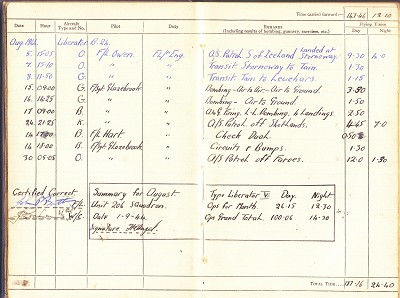 Time carried forward:— 163.46 12.10
Date Hour Aircraft Type and No. Pilot Duty REMARKS (Including results of bombing, gunnery, exercises, etc.) Flying Times Day Night
Aug 1944. Liberator B.24.
5. 15.05 O. F/L Owen. Flt/Eng. O/S Patrol S of Iceland landed at Stornoway. 9.30 4.0
7. 15.10 O. " " Transit. Stornoway to Tain. 1.30
8. 11.50 G. " " Transit. Tain to Leuchars. 1.15
15. 09.00 G. F/Sgt Glazebrook. " Bombing - Air to Air - Air to Ground. 3.50
16. 16.25 G. " " Bombing - Air to Ground 1.50
17. 09.00 B. " " L.L. Bombing. 6 Landings 2.50
24. 21.25 K. " " O/S Patrol off Shetlands. 4.45 7.0
14 B. F/L Hart. " Check Dual. 0.50
14 15.00 B. F/Sgt Glazebrook. " Circuits & Bumps. 1.30
30 05.05 O. " " O/S Patrol off Faroes. 12.0 1.30
Certified Correct
Summary for August
Unit 206 Squadron.
Date 1-9-44.
Signature.
Type Liberator VI Day. Night
Ops for Month. 26.15 12.30
Ops Grand Total. 100.06 14.30
TOTAL TIME 24.40